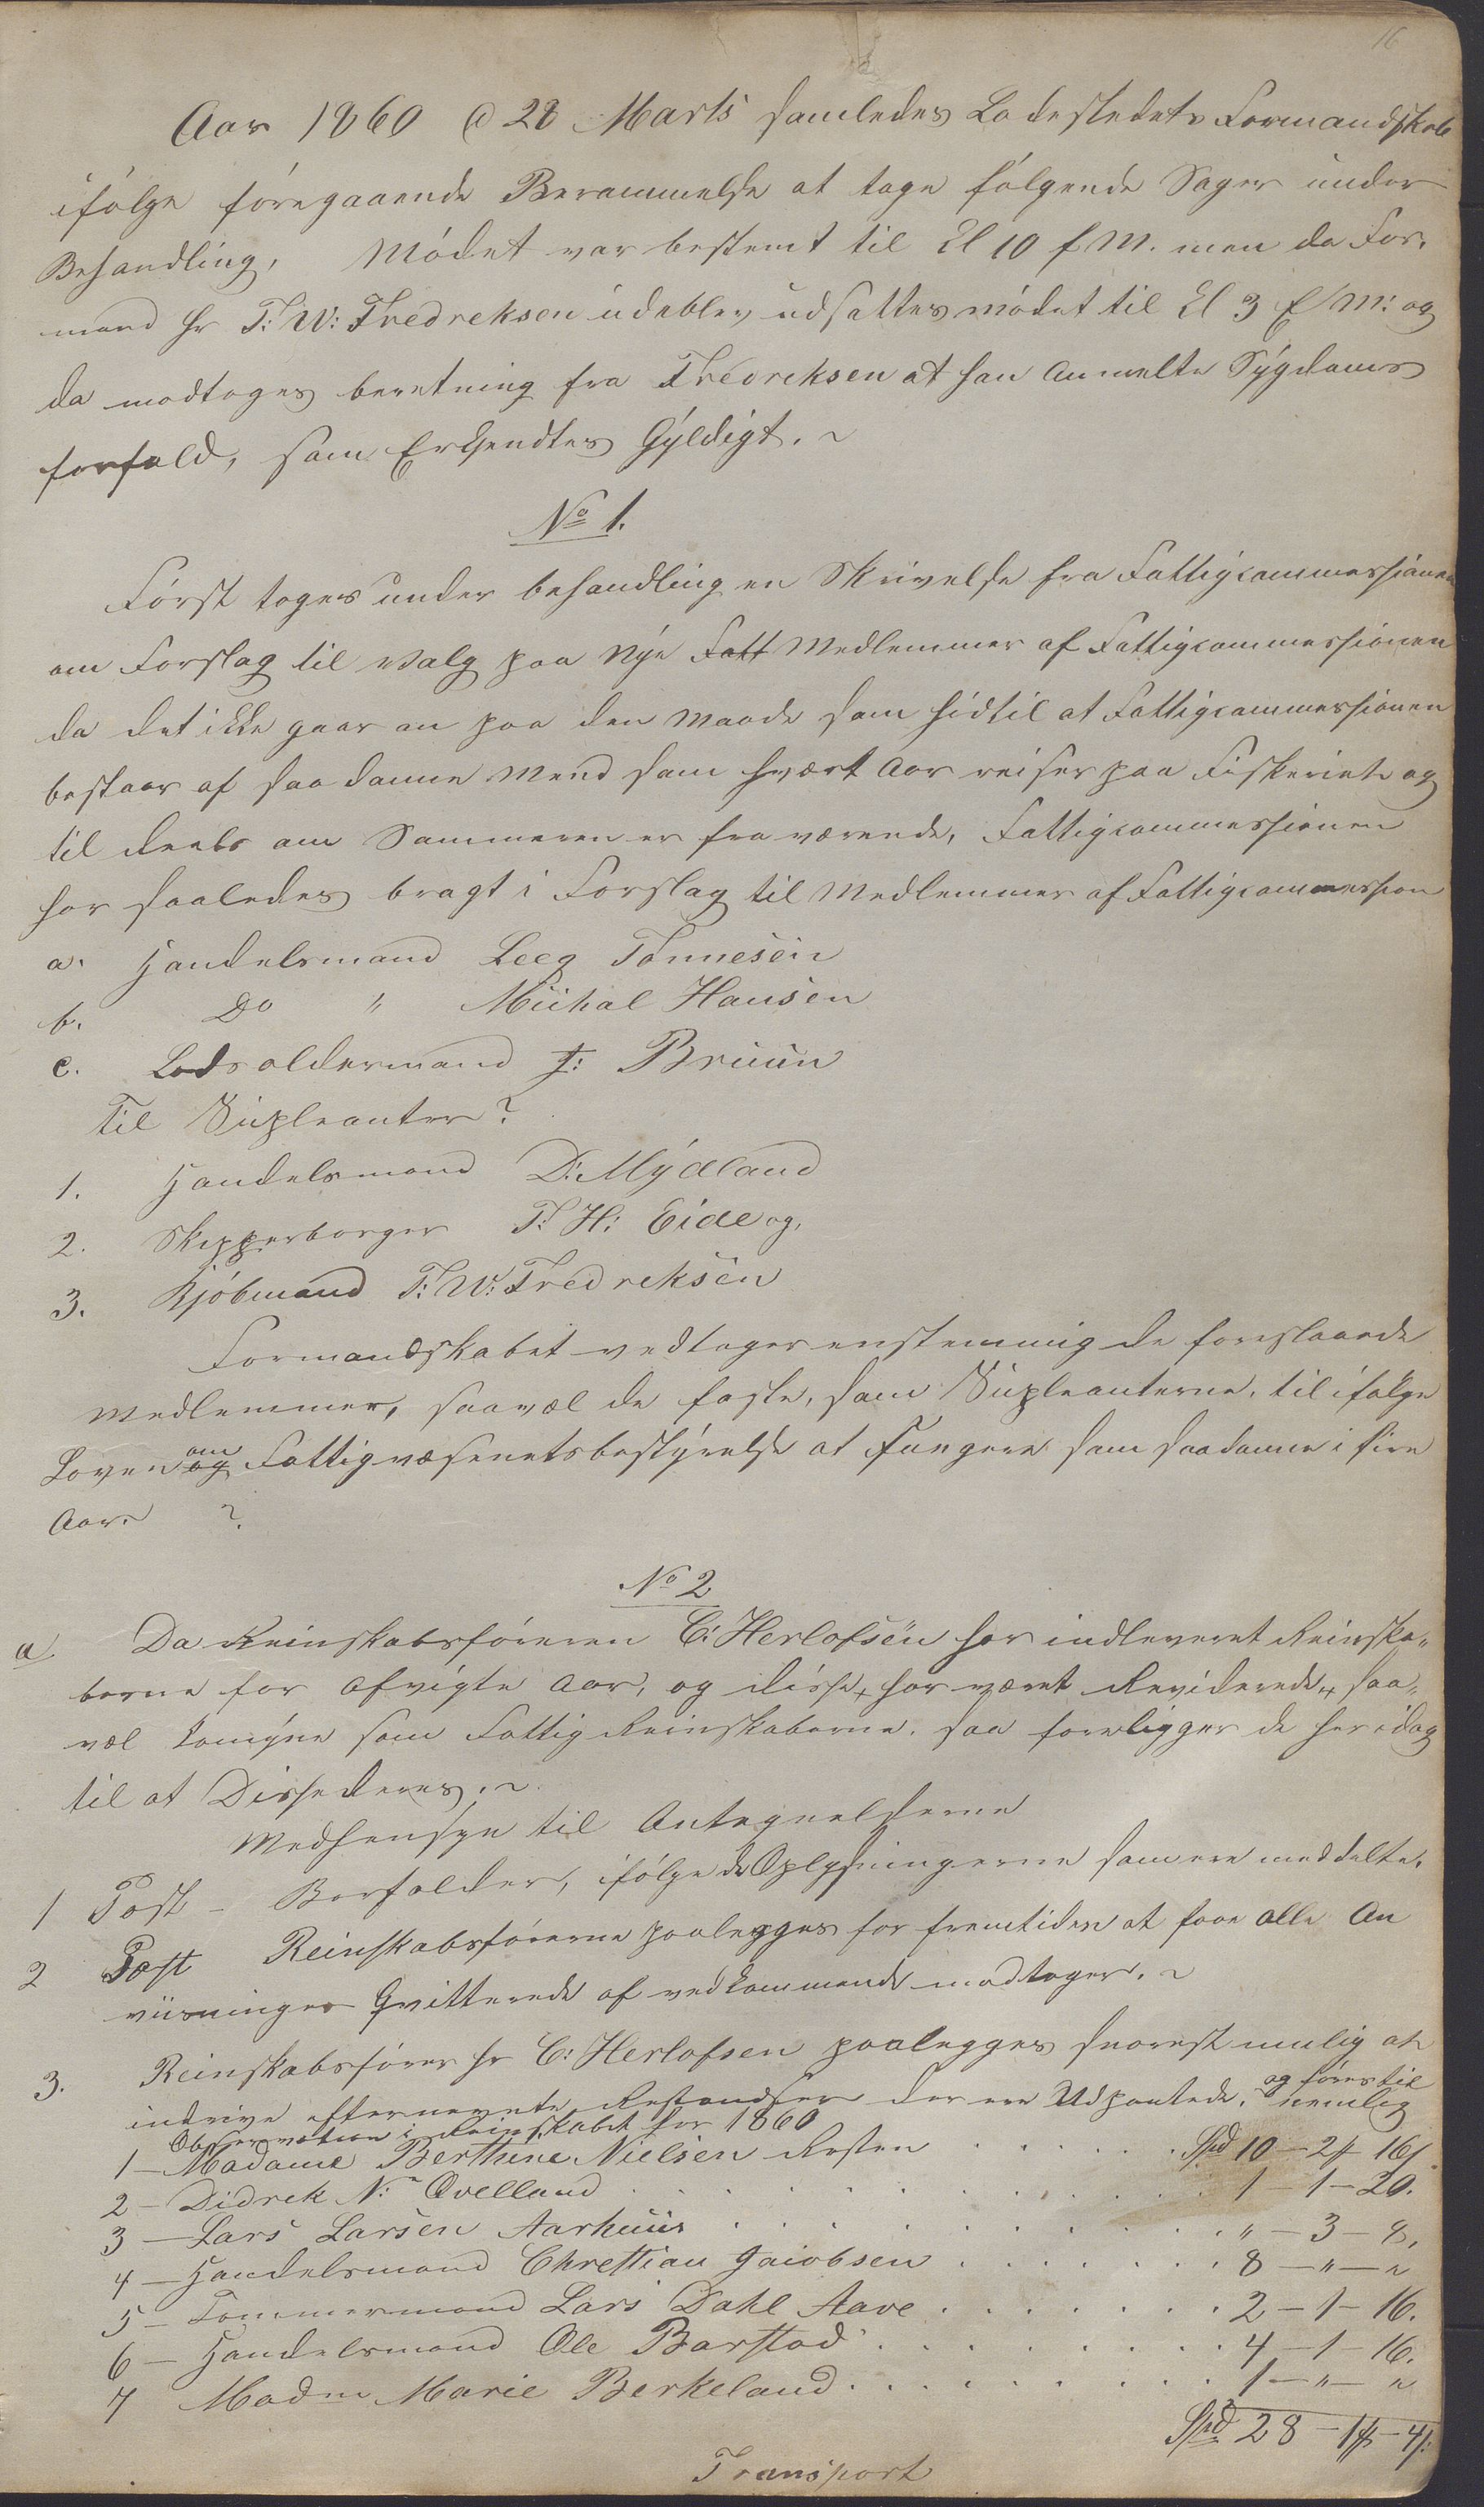 16
Aar 1860 @ 28 Marts samledes Ladestedets Formandskab
ifølge føregaaende Berammelse at tage følgende Sager under
Behandling, Mødet var bestemt til Kl 10 f M. men da For-
mand Hr T: W: Fredreksen udeblev udsattes mødet til Kl 3 E/M: og
da modtoges beretning fra Fredreksen at han Anmelte Sÿgdoms
forfald, som Erkjendtes Gÿldigt. ~
No 1.
Først toges under behandling en Skrivelse fra Fattigcommessionen
om Forslag til Valg paa Nye Fatt Medlemmer af Fattigcommessionen
da det ikke gaar an paa den Maade som hidtil at Fattigcommessionen
bestaar af saadanne Mend som hvært Aar reiser paa Fiskeriet og
til deels om Sommeren er fraværende, Fattigcommessionen
har saaledes bragt i Forslag til Medlemmer af Fattigcommession
a. Handelsmand Leeg Tønnesen
b. Do " Michal Hansen
c. Lodsoldermand J: Bruun
Til Supleanter?
1. Handelsmand D: Mÿdland
2. Skipperborger T: H: Eide og,
3. Kjøbmand T: W: Fredreksen
Formandskabet vedtager enstemmig de foreslaaede
Medlemmer, saavæl de faste, som Supleanterne, til ifølge
Loven og om Fattigvæsenets bestÿrelse at fungere som saadanne i fire
Aar. ~
No 2
a. Da Reinskabsføreren C: Herlofsen har indleveret Reinska-
berne for Afvigte Aar, og disse, har været Reviderede, saa-
væl Comÿne som Fattig Reinskaberne. saa foreligger de her idag
til at Dissederes. ~
Medhensyn til Antegnelserne
1 Post - Borfalder, ifølge de Oplysningerne som ere meddelte.
2 Post Reinskabsførerne paalegges for fremtiden at faae alle An
viisninger Qvitterede af vedkommende modtager. ~
3. Reinskabsfører Hr C: Herlofsen paalegges snarest mulig at
indrive efternevnte Restandser der ere Udpantede. og føres til
Observation i Reinskabet for 1860 nemlig
1 - Madame Berthine Nielsen Resten . . . . . Spd 10 - 2 # 16 s.
2 - Didrek N: Qvelland . . . . . 1 - 1 - 20.
3 - Lars Larsen Aarhuus . . . . . " - 3 - 8.
4 - Handelsmand Chrettian Jacobsen . . . . . 8 - " - "
5 - Tømmermand Lars Dahl Aave . . . . . 2 - 1 - 16.
6 - Handelsmand Ole Barstad . . . . . 4 - 1 - 16.
7 Madm Marie Berkeland . . . . . 1 - " - "
Spd 28 - 1 # - 4 s:
Transport